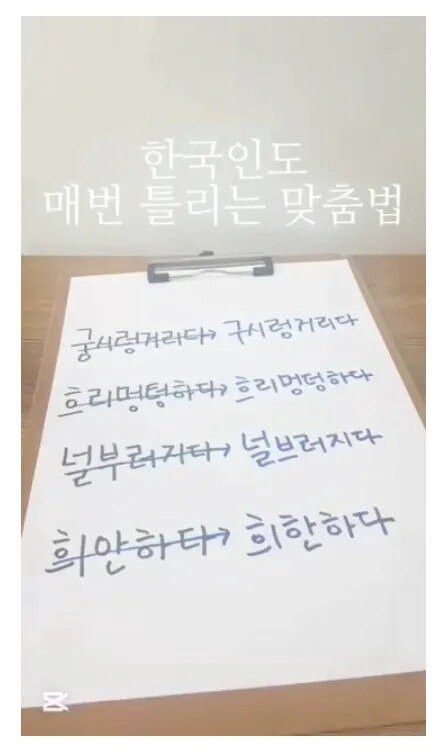 한국인도
매번 틀리는 맞춤법
궁시렁거리다→ 구시렁거리다
흐리멍텅하다→ 흐리멍덩하다
널부러지다→ 널브러지다
희안하다→ 희한하다